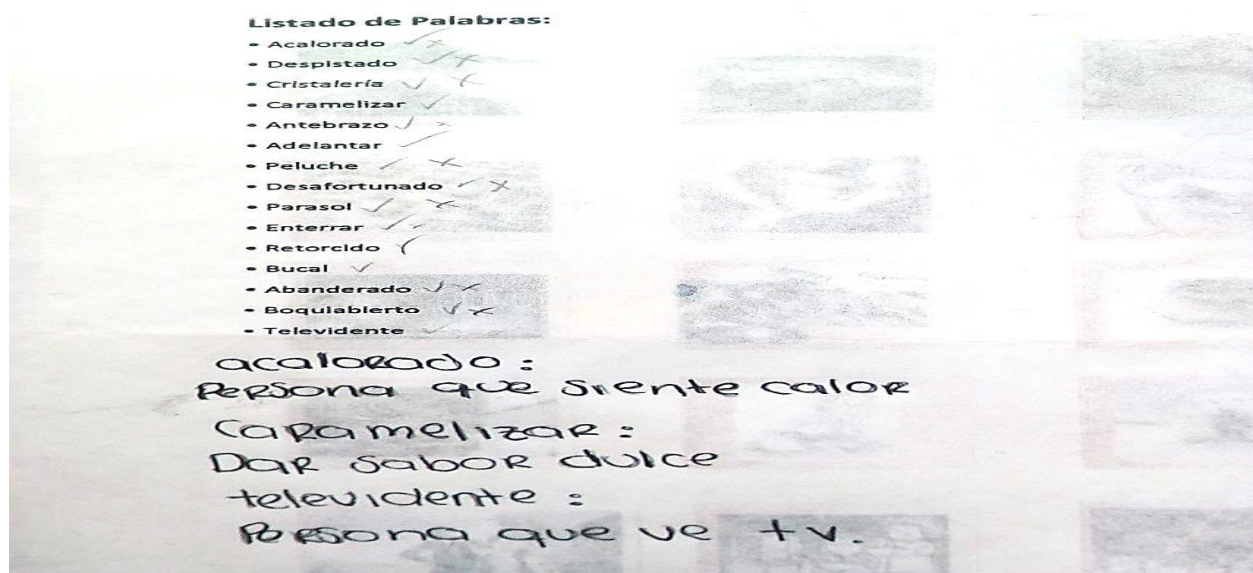 Listado de Palabras:
• Acalorado ✓ ×
• Despistado ✓ ×
• Cristalería ✓ ×
• Caramelizar ✓
• Antebrazo ✓ ×
• Adelantar ✓
• Peluche ✓ ×
• Desafortunado ✓ ×
• Parasol ✓ ×
• Enterrar ✓
• Retorcido ✓
• Bucal ✓
• Abanderado ✓ ×
• Boquiabierto ✓ ×
• Televidente ✓
acalorado:
Persona que siente calor
Caramelizar:
Dar sabor dulce
televidente:
Persona que ve tv.